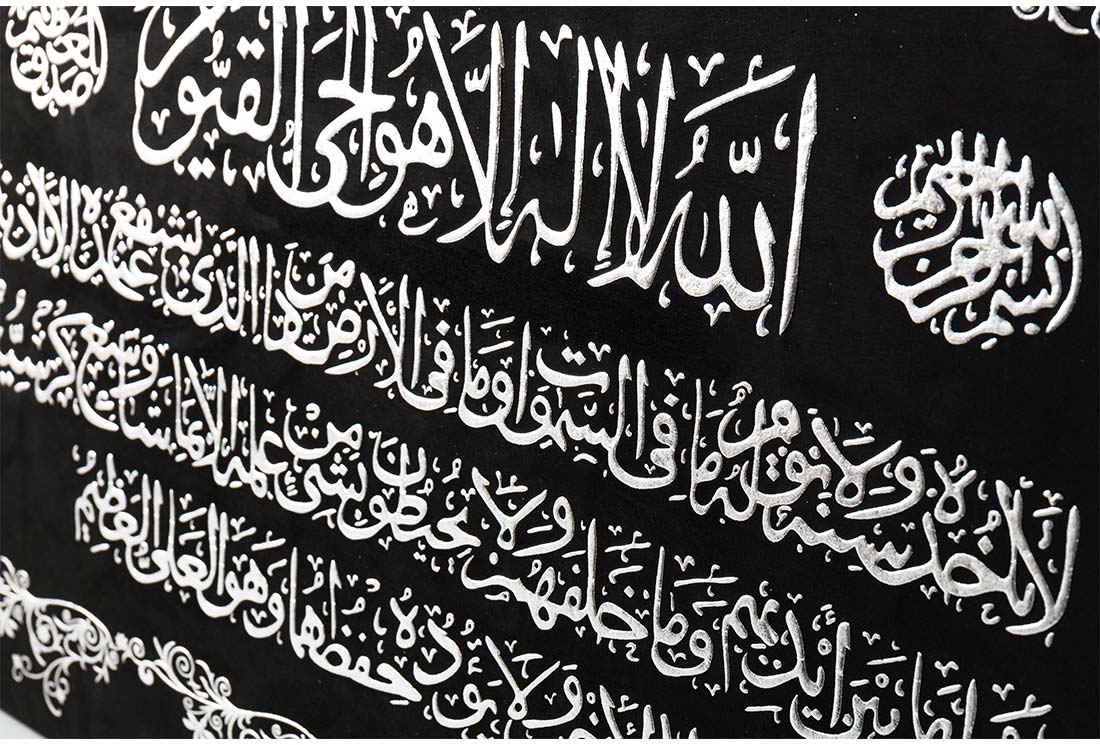 بسم الله الرحمن الرحيم
الله لا إله إلا هو الحي القيوم
صدق الله العظيم
لا تأخذه سنة ولا نوم له ما في السموات وما في الأرض من ذا الذي يشفع عنده إلا بإذنه
أيديهم وما خلفهم ولا يحيطون بشيء من علمه إلا بما شاء وسع كرسيه
ولا يؤده حفظهما وهو العلي العظيم